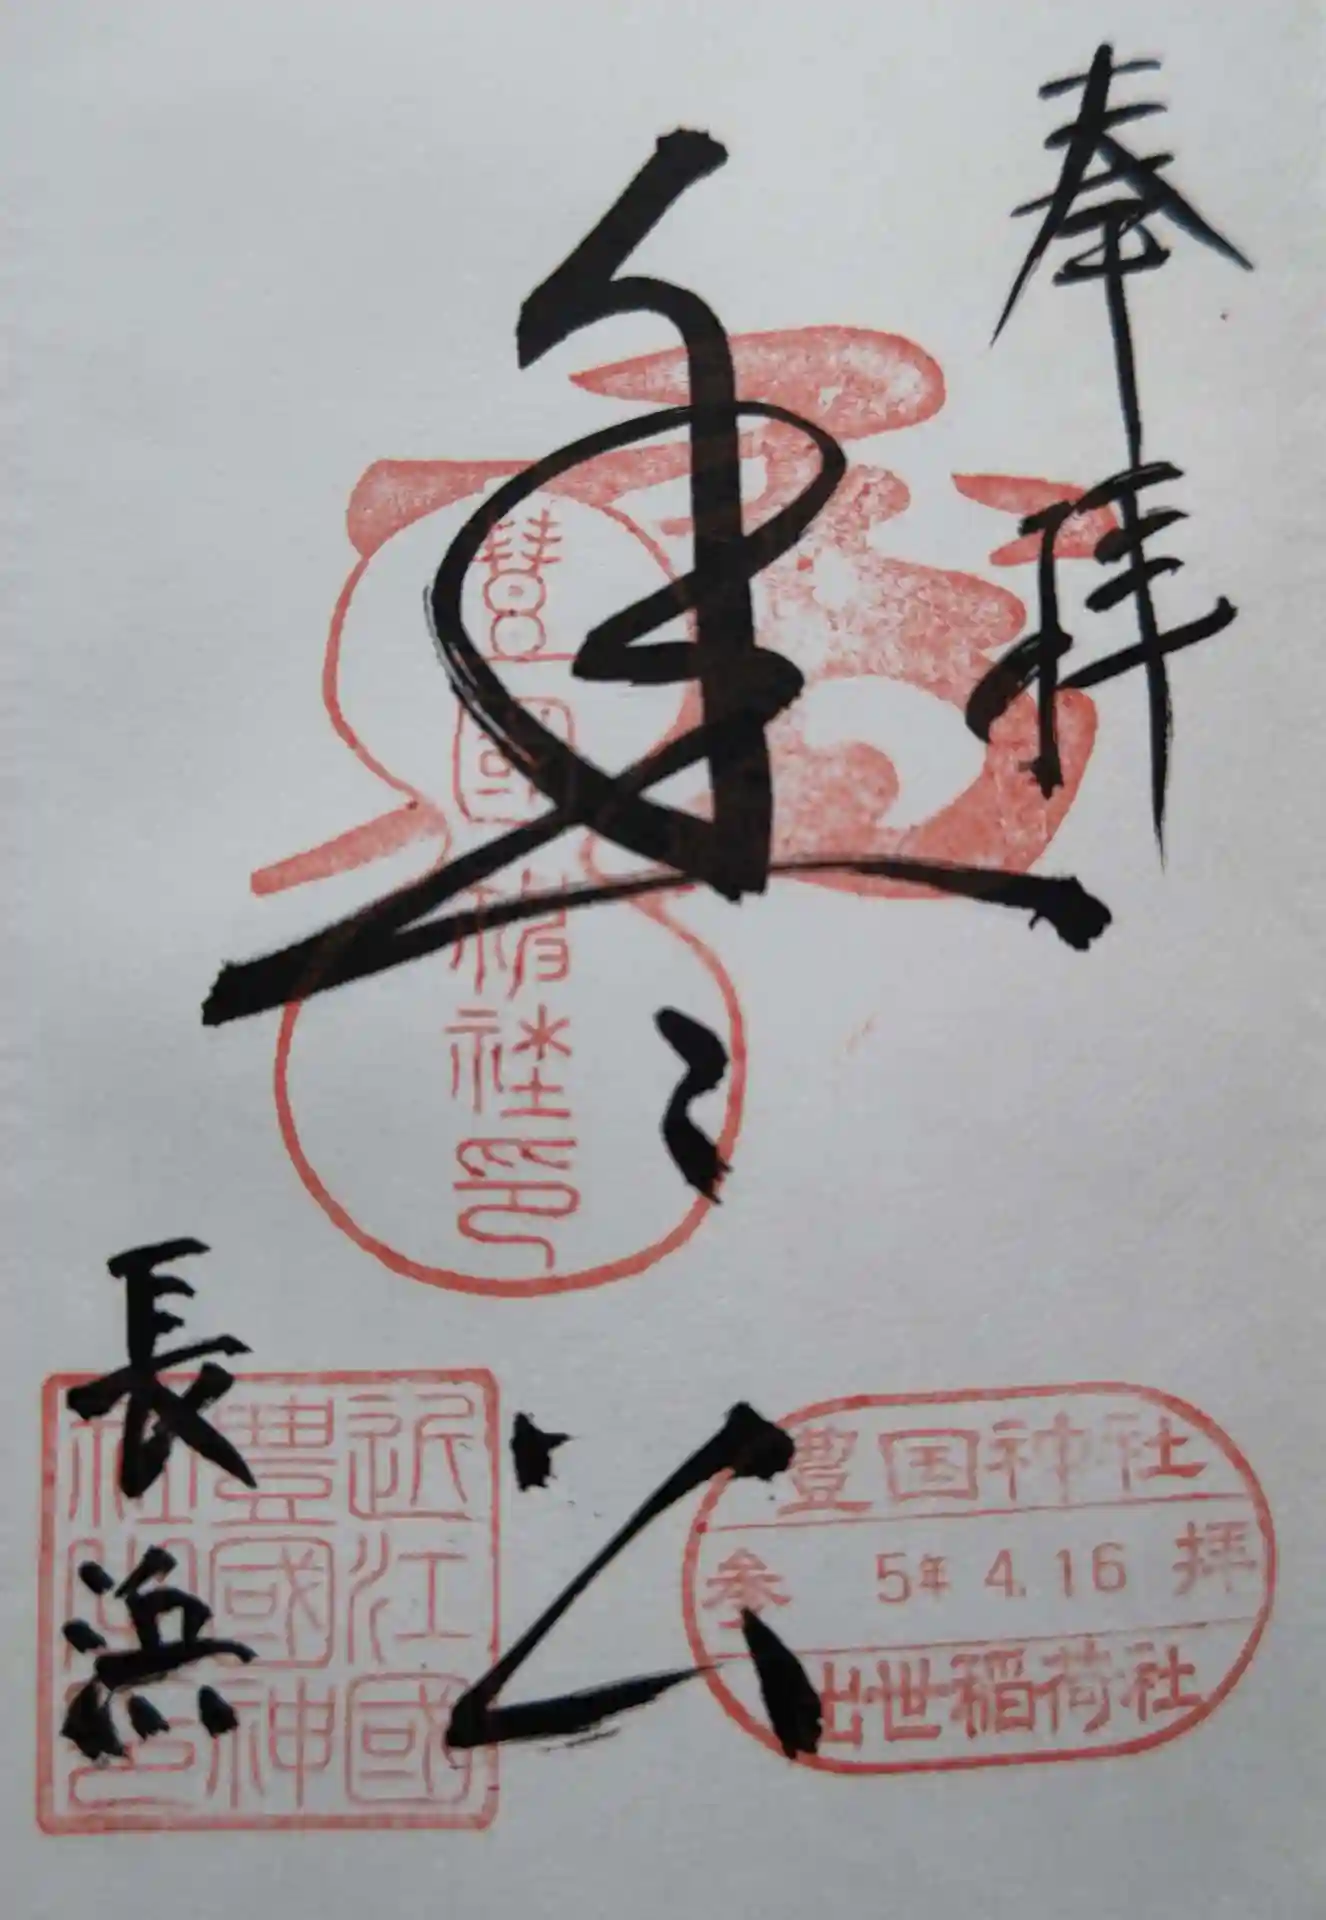 奉拝
豊國神社印
長浜
近江國
豊國神
社之印
豊国神社
参 5年 4.16 拝
出世稲荷社